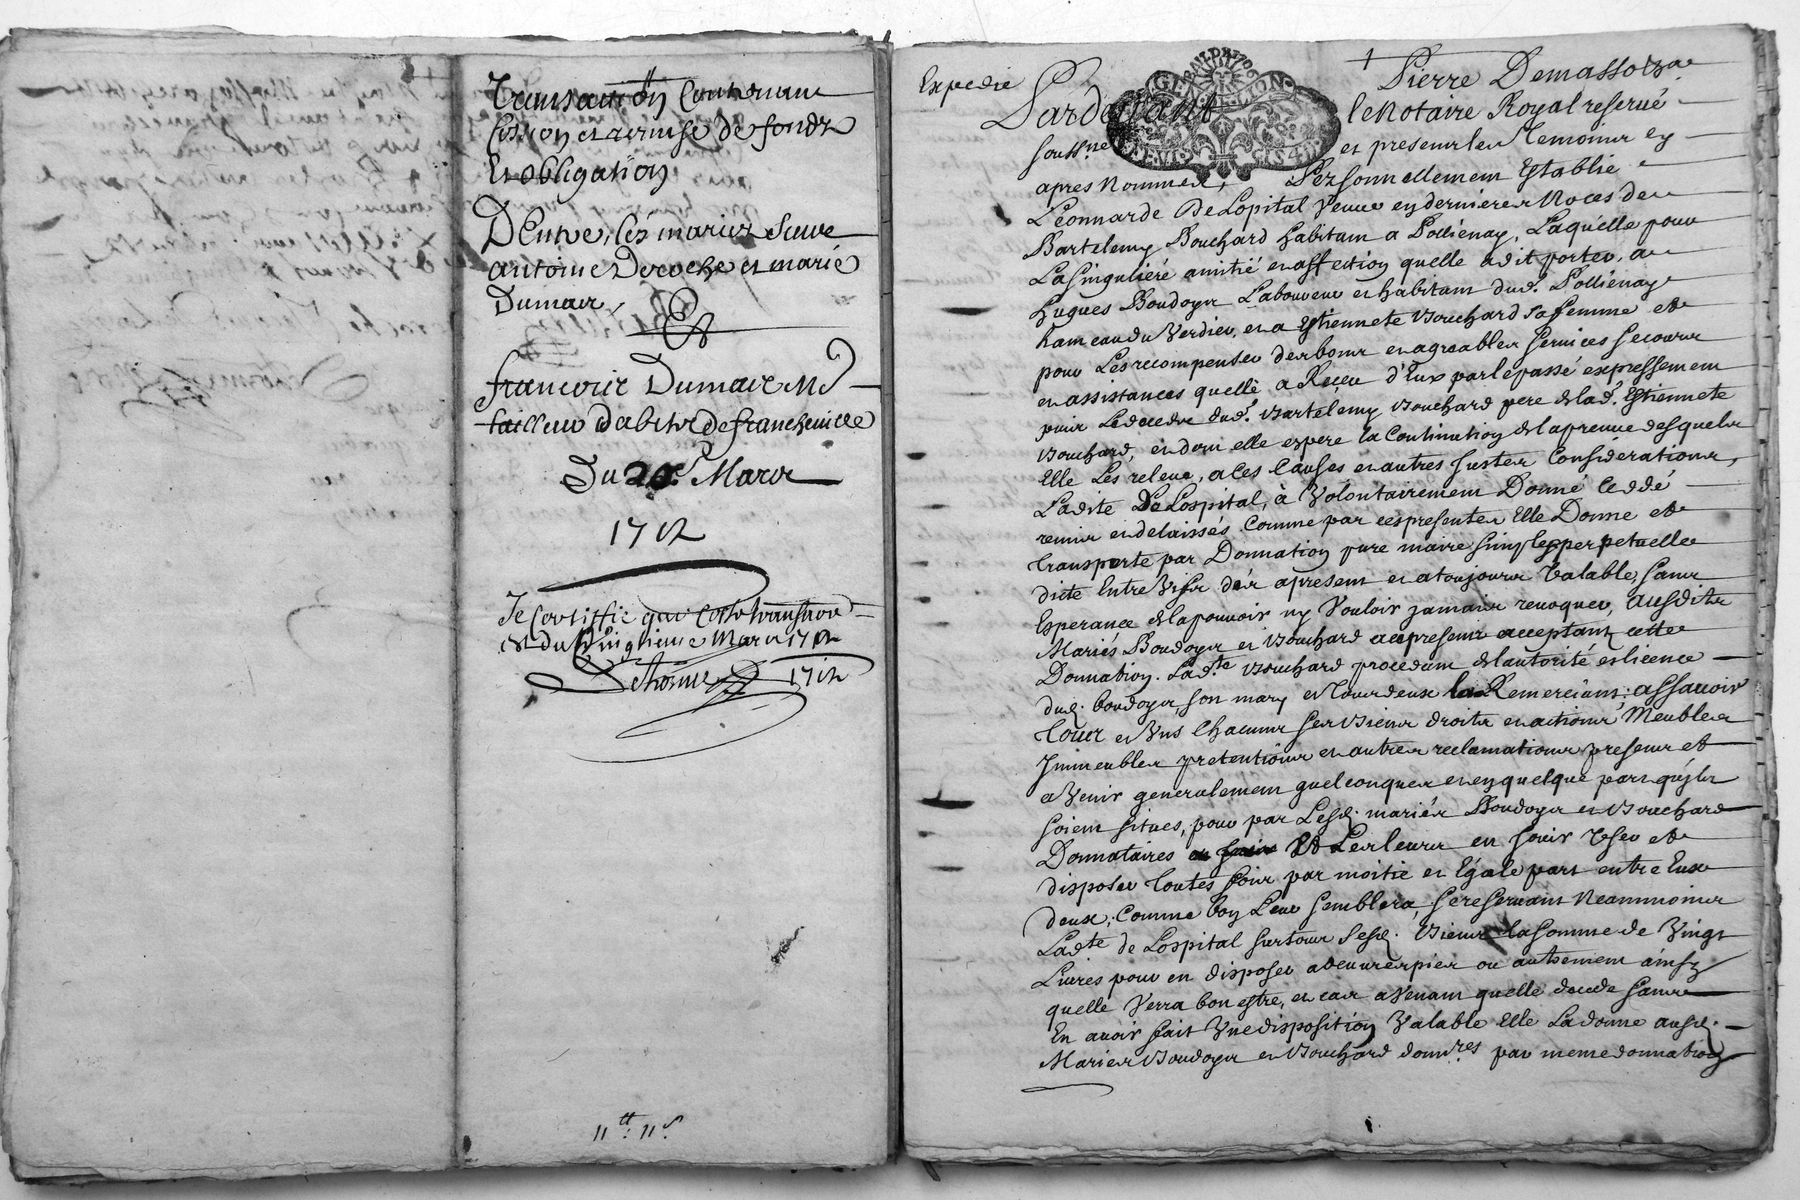 Transaction Contenant
Cession et remise de fondz
Et obligation
D'Entre, les mariez sieur
antoine Deroche et marie
Dumas,
Et
francois Dumas Md
tailleur d'abits de francheville
Du 20e Mars
1712
Je Certiffie que cette transaon
est du vingtieme Mars 1712
Delhorme 1712
11tt: 11s
Expedié
1
Pardevant Pierre Demassoz
le Notaire Royal reservé
soussne et presentz les Temoins en
apres Nommez, Personnellement Establie
Leonnarde De Lopital veuve en dernieres Noces de
Bartelemy Bouchard habitant a Pollienay, Laquelle pour
La singuliere amitié et affection quelle a dit porter, a
hugues Boudoyr Laboureur et habitant dud. Pollienay
hameau du Verdier, et a Estiennete Bouchard sa femme et
pour Les recompenser des bons et agreables services secours
et assistances quelle a Reçeu d'Eux par le passé expressement
puis Le deceds dud. Bartelemy Bouchard pere de lad. Estiennete
Bouchard, et dont elle espere la Continution de la preuve desquels
Elle Les releve, a Ces Causes et autres justes Considerations,
Ladite De Lospital, à Volontairement Donné Ceddé
remis et delaissés Comme par ces presentes Elle Donne et
transporte par Donnation pure maire simple perpetuelle
dicte Entre Vifs des apresent et a toujours Valable, sans
Esperance de la pouvoir ny Vouloir jamais revoquer, ausdits
Mariés Boudoyr et Bouchard cy presents acceptant cette
Donnation. Lad.te Bouchard procedant de l'autorité et licence
dud. boudoyr son mary et tous deux la Remerciant: assavoir
touts et Uns Chacuns ses biens droits et actions Meubles
Immeubles pretentions et autres reclamations presens et
a Venir generalement quelconques et en quelque part qu'ils
soient situés, pour par Lesd. mariés Boudoyr et Bouchard
Donnataires en faire Et Les leurs en jouir User et
disposer toutes fois par moitié et Egale part entre Eux
deux, Comme bon Leur semblera, se reservant Neanmmoins
Ladte de Lospital sur tous sesd. biens la somme de Vingt
Livres pour en disposer a oeuvres pies ou autrement ainsy
quelle Verra bon estre, et cas avenant quelle decede sans
En avoir fait Une disposition Valable Elle La donne ausd.
Mariés Boudoyr et Bouchard donnres par meme donnation